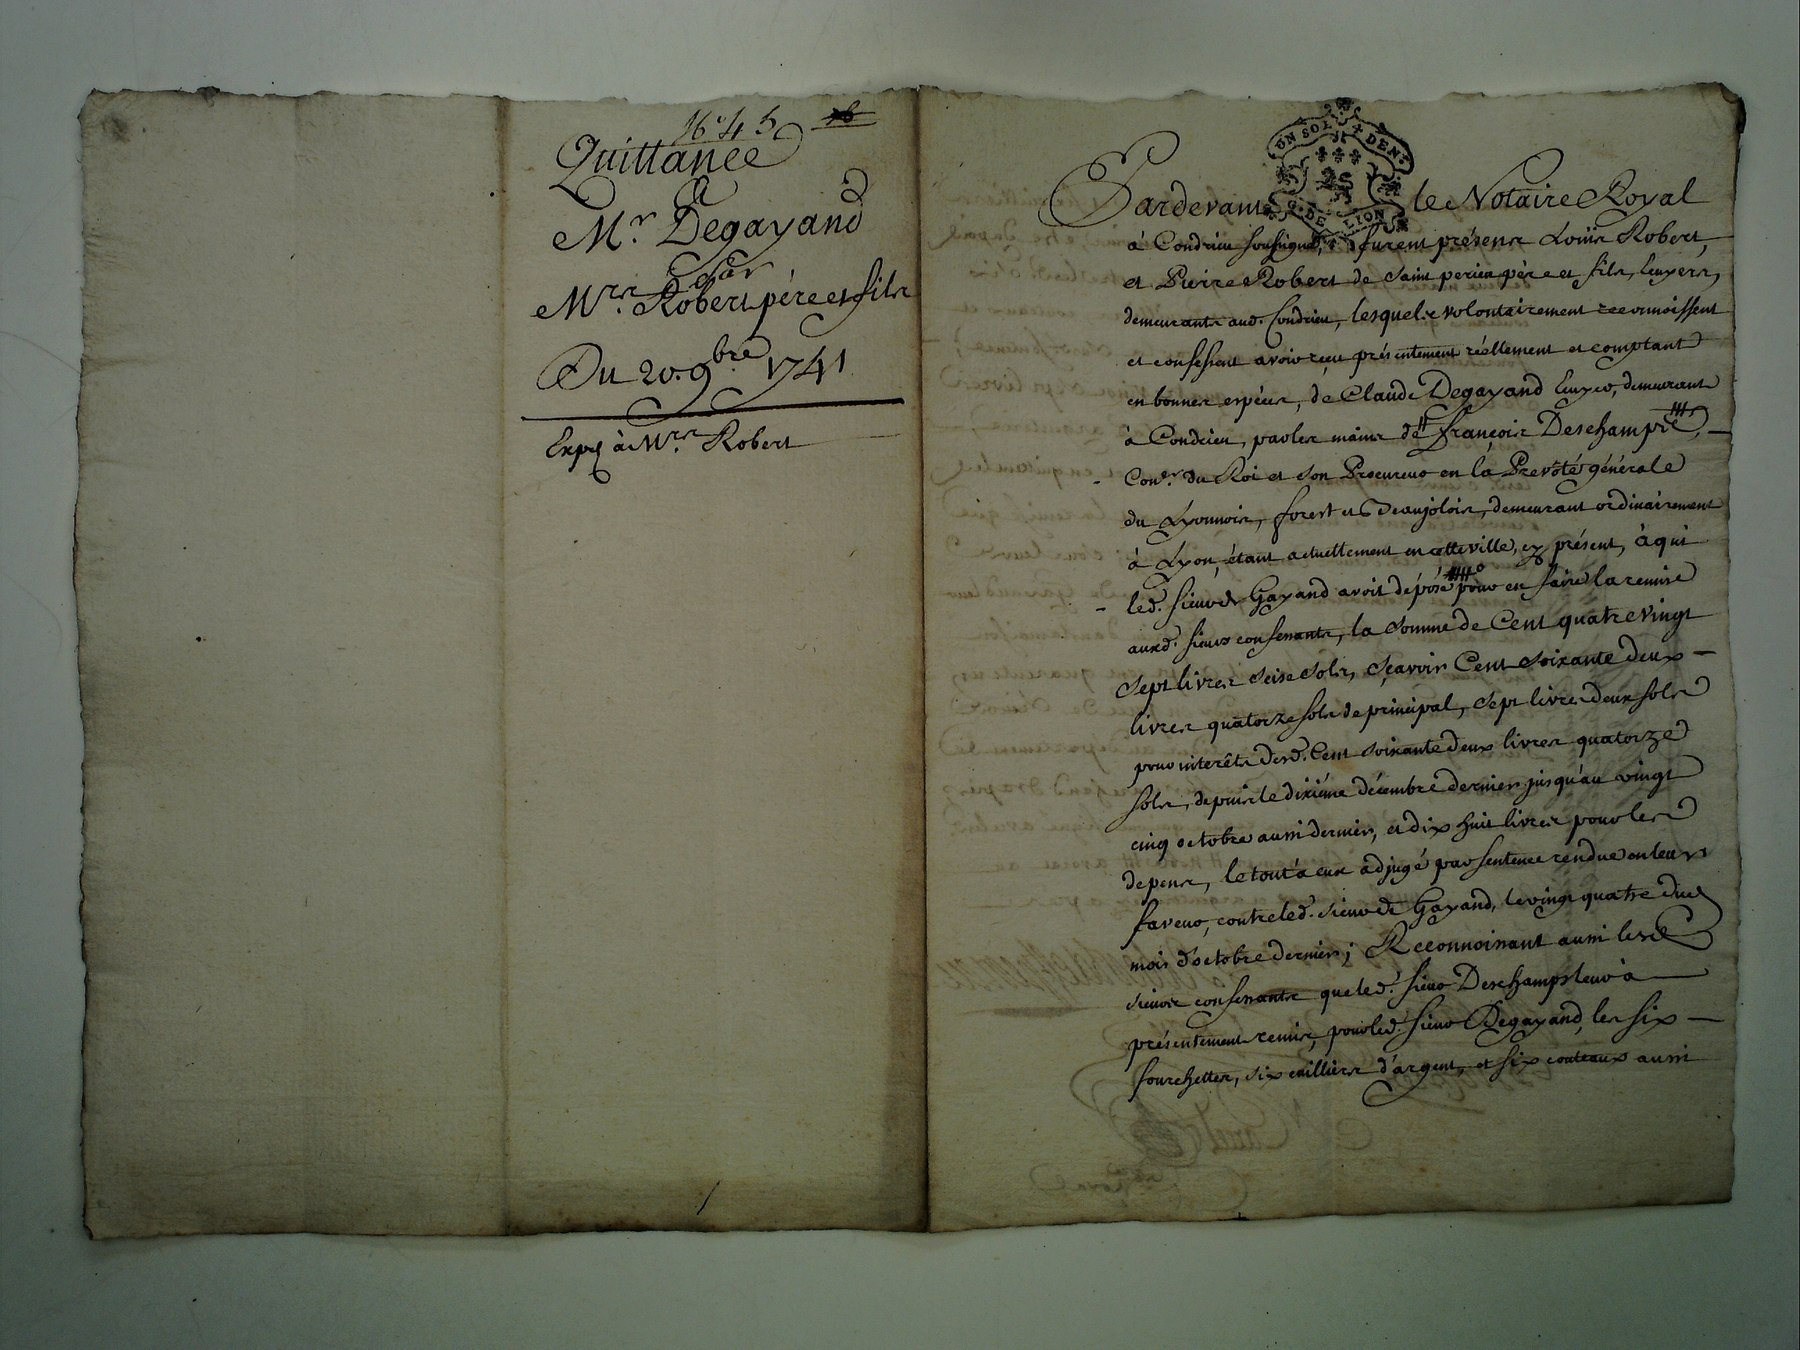 16 45 26
Quittance
a
Mr. Degayand
par
Mrs. Robert père et fils
Du 20. 9bre 1741
Expé à Mrs. Robert
UN SOL 4 DEN.
G. DE LION
Pardevant le Notaire Royal
à Condrieu soussigné, furent présens Loüis Robert,
et Pierre Robert de Saint perieu père et fils,
demeurants aud. Condrieu, lesquels volontairement reconnoissent
et confessent avoir reçu présentement réellement et comptant
en bonnes espéces, de Claude Degayand demeurant
à Condrieu, par les mains de François Deschamps
Coner. du Roi et son Procureur en la Prevôté générale
du Lyonnois, forest et Beaujolois, demeurant ordinairement
à Lyon, étant actuellement en cette ville, cy présent, à qui
led. sieur de Gayand avoit déposé pour en faire la remise
auxd. sieurs confessants, la somme de Cent quatre vingt
sept livres seise sols, sçavoir Cent soixante deux
livres quatorze sols de principal, sept livres deux sols
pour interêts desd. Cent soixante deux livres quatorze
sols, depuis le dixiéme décembre dernier jusqu'au vingt
cinq octobre aussi dernier, et dix huit livres pour les
depens, le tout à eux adjugé par sentence rendue en leur
faveur, contre led. sieur de Gayand, le vingt quatre dud.
mois d'octobre dernier; Reconnoissant aussi lesd.
sieurs confessants que led. sieur Deschamps leur à
présentement remis, pour led. sieur Degayand, les six
fourchettes, six cuilliers d'argent, et six couteaux aussi